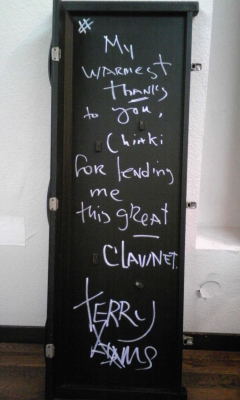 #
My
WARMEST
thanks
to you,
Chiaki
for lending
me
this great
CLAVINET.
TERRY
ADAMS